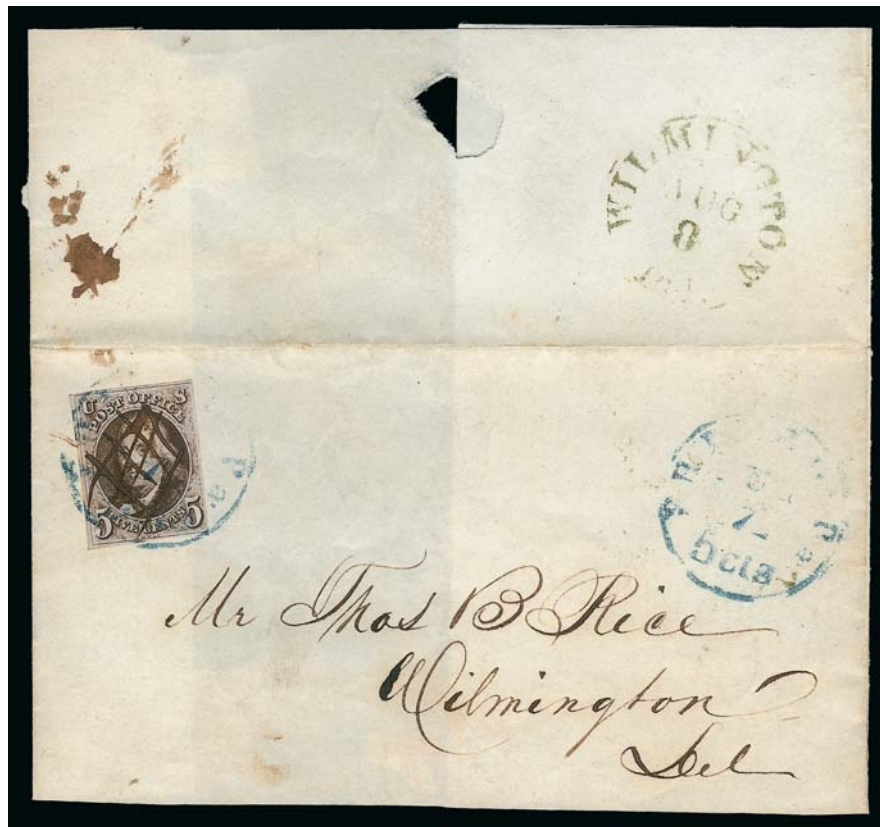 WILMINGTON
AUG
8
U S
POST OFFICE
5 FIVE CENTS 5
Pa.
5 cts
Pa.
Mr Thos B Rice
Wilmington
Del